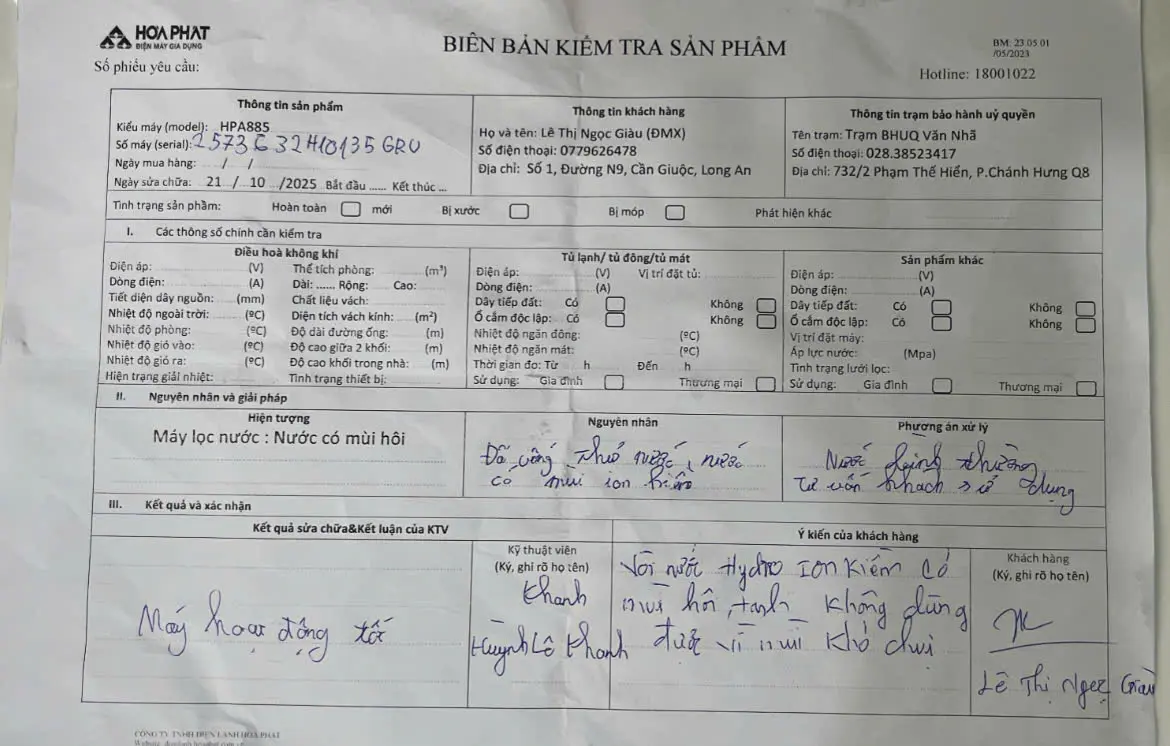 HÒA PHÁT
ĐIỆN MÁY GIA DỤNG
Số phiếu yêu cầu:
BIÊN BẢN KIỂM TRA SẢN PHẨM
BM: 23 05 01
/05/2023
Hotline: 18001022
Thông tin sản phẩm
Kiểu máy (model): HPA885
Số máy (serial):
Ngày mua hàng: / /
Ngày sửa chữa: 21 / 10 /2025 Bắt đầu ...... Kết thúc ...
Thông tin khách hàng
Họ và tên: Lê Thị Ngọc Giàu (ĐMX)
Số điện thoại: 0779626478
Địa chỉ: Số 1, Đường N9, Cần Giuộc, Long An
Thông tin trạm bảo hành uỷ quyền
Tên trạm: Trạm BHUQ Văn Nhã
Số điện thoại: 028.38523417
Địa chỉ: 732/2 Phạm Thế Hiển, P.Chánh Hưng Q8
Tình trạng sản phẩm: Hoàn toàn mới Bị xước Bị móp Phát hiện khác
I. Các thông số chính cần kiểm tra
Điều hoà không khí
Điện áp: (V) Thể tích phòng: (m³)
Dòng điện: (A) Dài: ...... Rộng: Cao:
Tiết diện dây nguồn: (mm) Chất liệu vách:
Nhiệt độ ngoài trời: (ºC) Diện tích vách kính: (m²)
Nhiệt độ phòng: (ºC) Độ dài đường ống: (m)
Nhiệt độ gió vào: (ºC) Độ cao giữa 2 khối: (m)
Nhiệt độ gió ra: (ºC) Độ cao khối trong nhà: (m)
Hiện trạng giải nhiệt: Tình trạng thiết bị:
Tủ lạnh/ tủ đông/tủ mát
Điện áp: (V) Vị trí đặt tủ:
Dòng điện: (A)
Dây tiếp đất: Có Không
Ổ cắm độc lập: Có Không
Nhiệt độ ngăn đông: (ºC)
Nhiệt độ ngăn mát: (ºC)
Thời gian đo: Từ h Đến h
Sử dụng: Gia đình Thương mại
Sản phẩm khác
Điện áp: (V)
Dòng điện: (A)
Dây tiếp đất: Có Không
Ổ cắm độc lập: Có Không
Vị trí đặt máy:
Áp lực nước: (Mpa)
Tình trạng lưới lọc:
Sử dụng: Gia đình Thương mại
II. Nguyên nhân và giải pháp
Hiện tượng
Máy lọc nước : Nước có mùi hôi
Nguyên nhân
Đã uống thử nước, nước
có mùi ion kiềm
Phương án xử lý
Nước bình thường
Tư vấn khách sử dụng
III. Kết quả và xác nhận
Kết quả sửa chữa&Kết luận của KTV
Máy hoạt động tốt
Kỹ thuật viên
(Ký, ghi rõ họ tên)
Khanh
Huỳnh Lê Khanh
Ý kiến của khách hàng
Vòi nước Hydro Ion Kiềm có
mùi hôi, tanh không dùng
được vì mùi khó chịu
Khách hàng
(Ký, ghi rõ họ tên)
Lê Thị Ngọc Giàu
CÔNG TY TNHH ĐIỆN LẠNH HÒA PHÁT